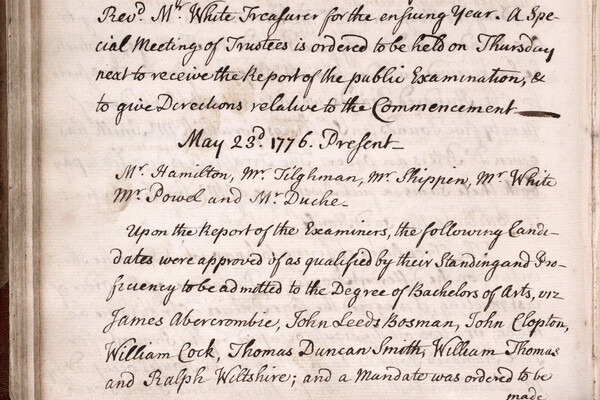 Revd. Mr. White Treasurer for the ensuing Year. A Spe-
cial Meeting of Trustees is ordered to be held on Thursday
next to receive the Report of the public Examination, &
to give Directions relative to the Commencement—
May 23d. 1776. Present—
Mr. Hamilton, Mr. Tilghman, Mr. Shippen, Mr. White
Mr. Powel and Mr. Duche—
Upon the Report of the Examiners, the following Candi-
dates were approved of as qualified by their Standing and Pro-
ficiency to be admitted to the Degree of Bachelors of Arts, viz
James Abercrombie, John Leeds Bosman, John Clopton,
William Cock, Thomas Duncan Smith, William Thomas
and Ralph Wiltshire; and a Mandate was ordered to be
made